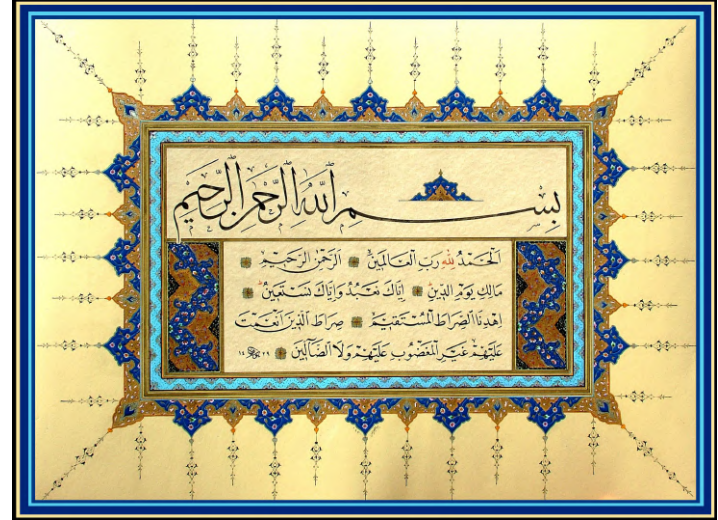 بِسْمِ اللهِ الرَّحْمٰنِ الرَّحِيمِ
اَلْحَمْدُ لِلّٰهِ رَبِّ الْعَالَمِينَ اَلرَّحْمٰنِ الرَّحِيمِ
مَالِكِ يَوْمِ الدِّينِ اِيَّاكَ نَعْبُدُ وَاِيَّاكَ نَسْتَعِينُ
اِهْدِنَا الصِّرَاطَ الْمُسْتَقِيمَ صِرَاطَ الَّذِينَ اَنْعَمْتَ
عَلَيْهِمْ غَيْرِ الْمَغْضُوبِ عَلَيْهِمْ وَلَا الضَّالِّينَ